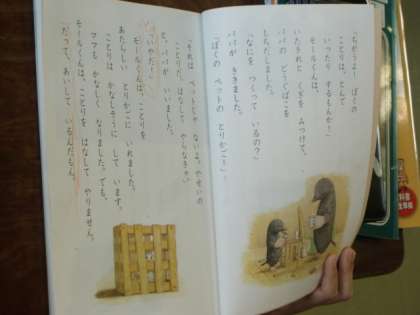 「ちがうよ！ ぼくの
ことりは、とんで
いったり するもんか！」
モールくんは、
いたきれと くぎを みつけて、
パパの どうぐばこを
もちだしました。
「なにを つくって いるの？」
パパが ききました。
「ぼくの ペットの とりかご！」
「それは ペットじゃ ないよ。やせいの
ことりだ。はなして やらなきゃ。」
と、パパが いいました。
「いやだ！」
モールくんは、ことりを
あたらしい とりかごに いれました。
ことりは かなしそうに して います。
ママも かなしく なりました。でも、
モールくんは、ことりを はなして やりません。
「だって、あいして いるんだもん。」